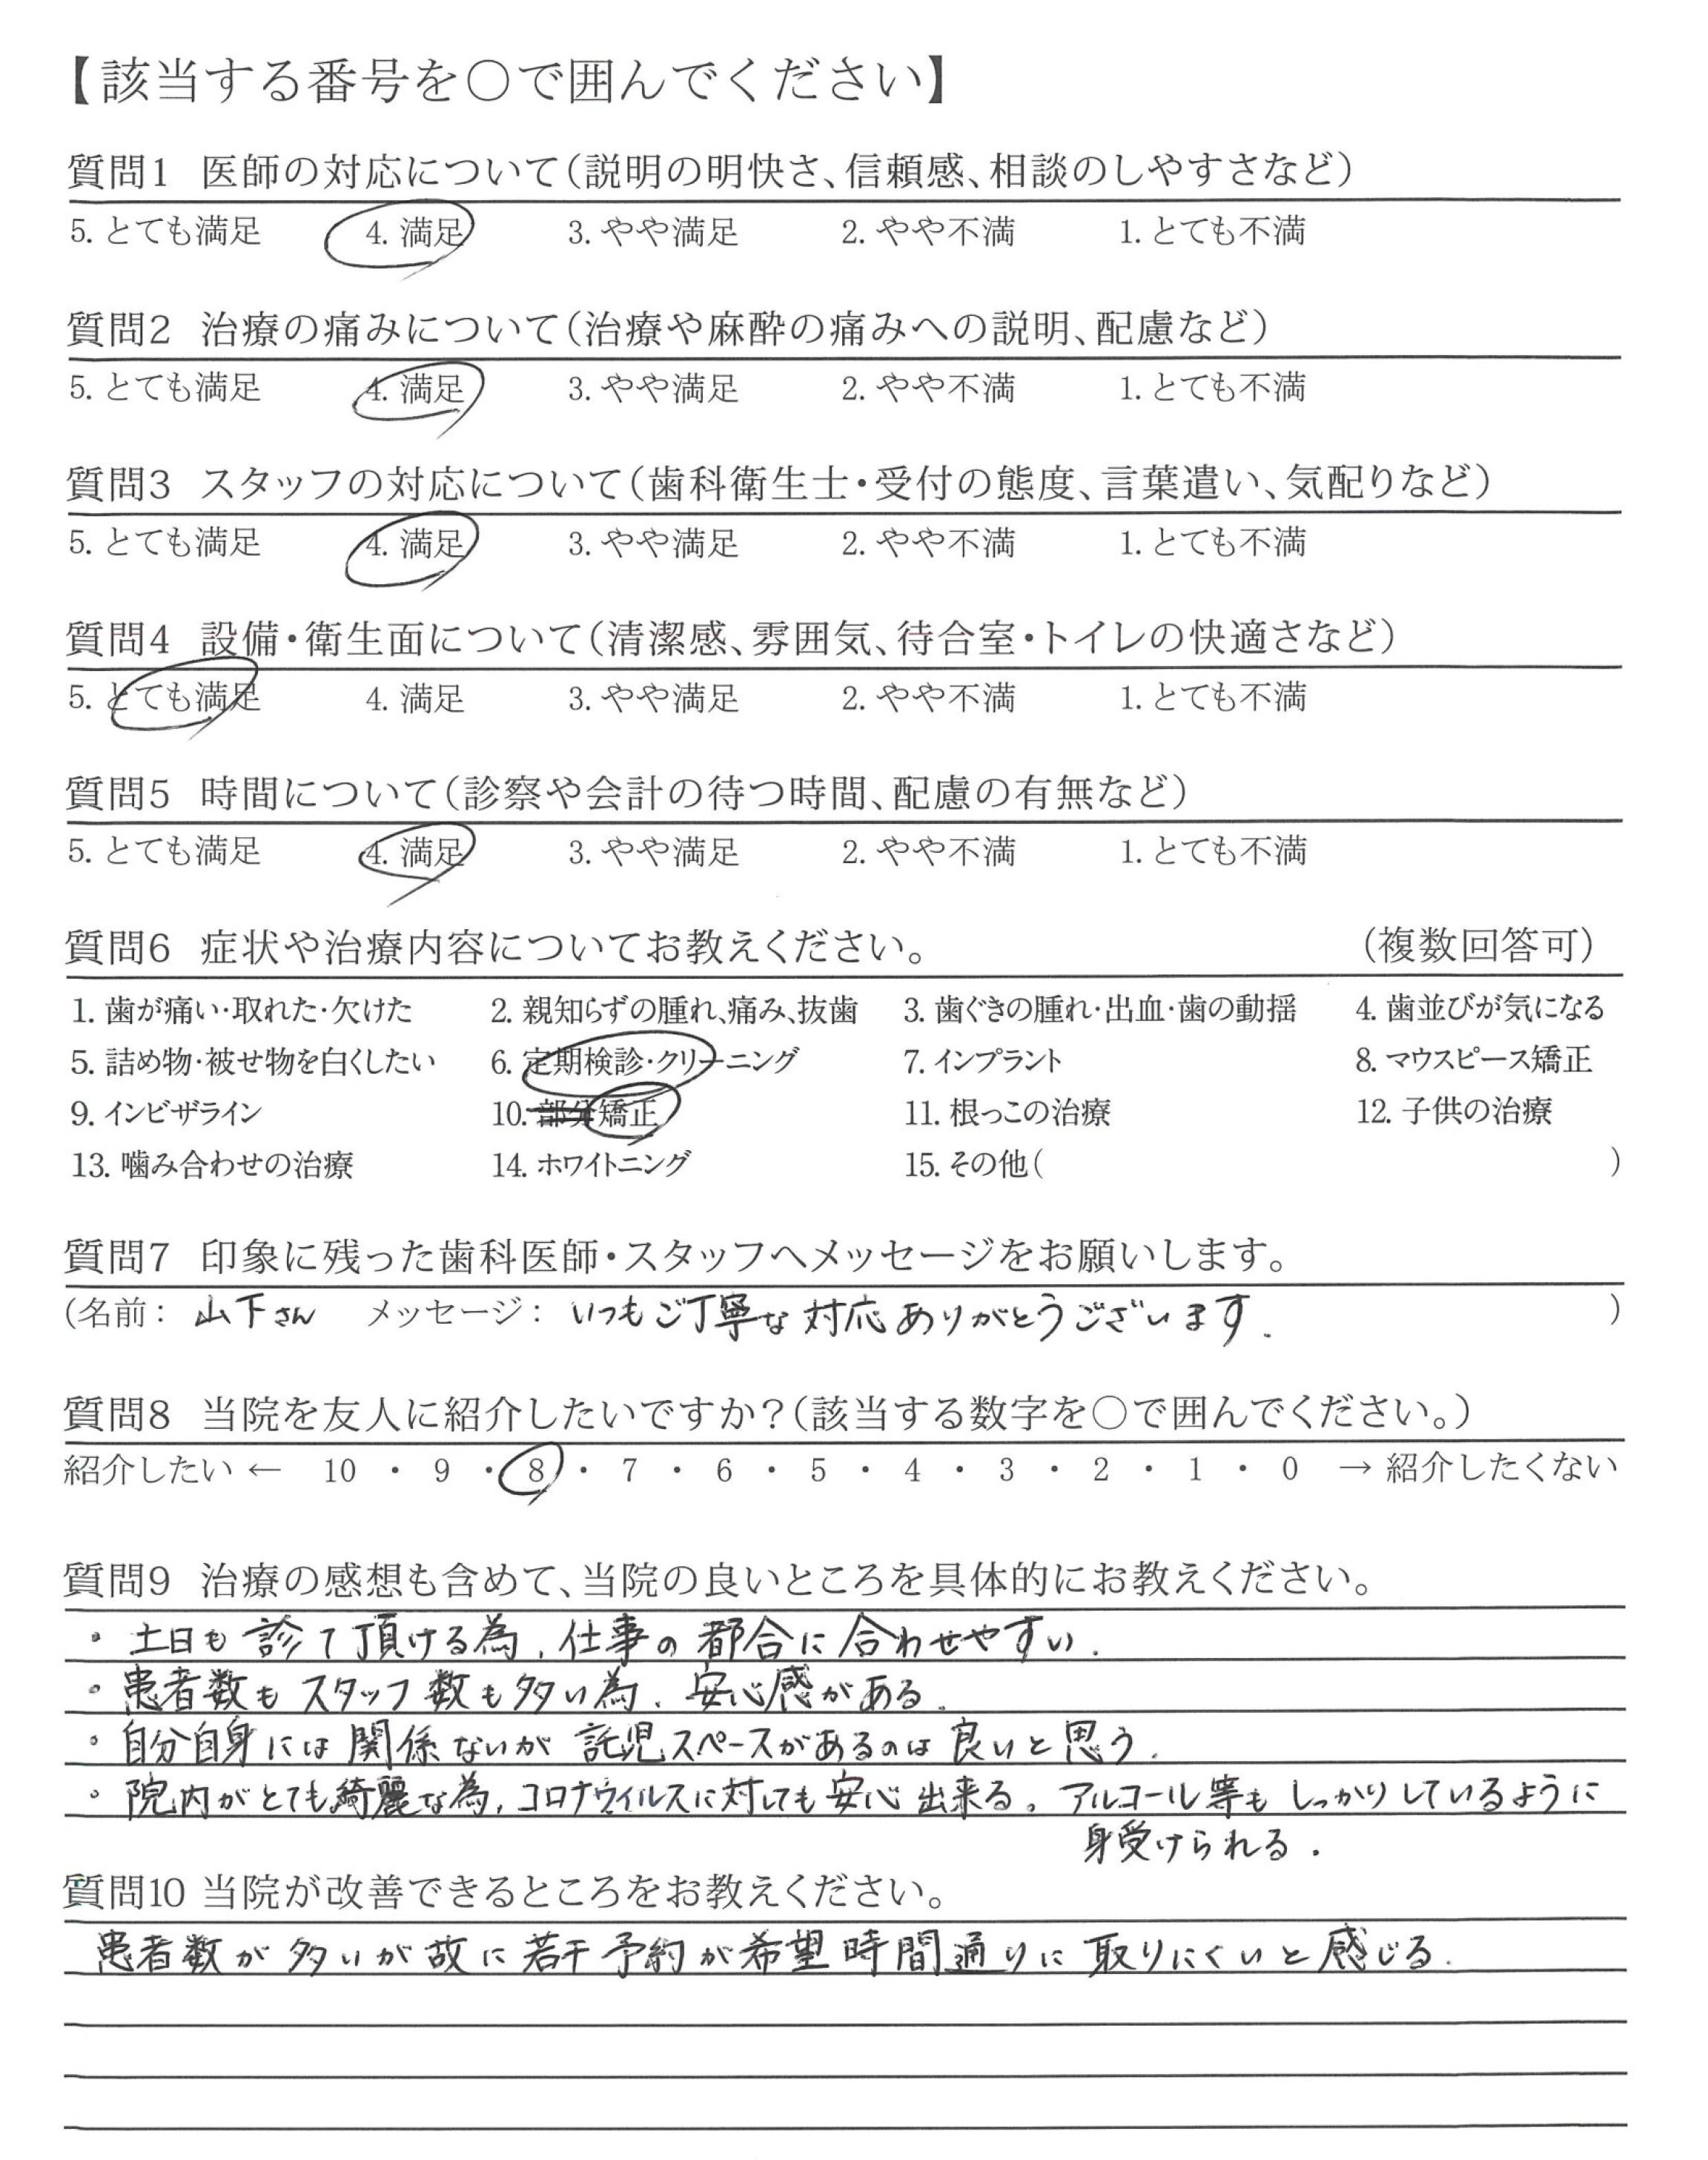 【該当する番号を〇で囲んでください】
質問1 医師の対応について(説明の明快さ、信頼感、相談のしやすさなど)
5. とても満足 4. 満足 3. やや満足 2. やや不満 1. とても不満
質問2 治療の痛みについて(治療や麻酔の痛みへの説明、配慮など)
5. とても満足 4. 満足 3. やや満足 2. やや不満 1. とても不満
質問3 スタッフの対応について(歯科衛生士・受付の態度、言葉遣い、気配りなど)
5. とても満足 4. 満足 3. やや満足 2. やや不満 1. とても不満
質問4 設備・衛生面について(清潔感、雰囲気、待合室・トイレの快適さなど)
5. とても満足 4. 満足 3. やや満足 2. やや不満 1. とても不満
質問5 時間について(診察や会計の待つ時間、配慮の有無など)
5. とても満足 4. 満足 3. やや満足 2. やや不満 1. とても不満
質問6 症状や治療内容についてお教えください。 (複数回答可)
1. 歯が痛い・取れた・欠けた 2. 親知らずの腫れ、痛み、抜歯 3. 歯ぐきの腫れ・出血・歯の動揺 4. 歯並びが気になる
5. 詰め物・被せ物を白くしたい 6. 定期検診・クリーニング 7. インプラント 8. マウスピース矯正
9. インビザライン 10. 部分矯正 11. 根っこの治療 12. 子供の治療
13. 噛み合わせの治療 14. ホワイトニング 15. その他( )
質問7 印象に残った歯科医師・スタッフへメッセージをお願いします。
(名前: 山下さん メッセージ: いつもご丁寧な対応ありがとうございます. )
質問8 当院を友人に紹介したいですか?(該当する数字を〇で囲んでください。)
紹介したい ← 10 ・ 9 ・ 8 ・ 7 ・ 6 ・ 5 ・ 4 ・ 3 ・ 2 ・ 1 ・ 0 → 紹介したくない
質問9 治療の感想も含めて、当院の良いところを具体的にお教えください。
・ 土日も診て頂ける為、仕事の都合に合わせやすい.
・ 患者数もスタッフ数も多い為、安心感がある.
・ 自分自身には関係ないが託児スペースがあるのは良いと思う.
・ 院内がとても綺麗な為、コロナウィルスに対しても安心出来る。アルコール等もしっかりしているように
身受けられる.
質問10 当院が改善できるところをお教えください。
患者数が多いが故に若干予約が希望時間通りに取りにくいと感じる.